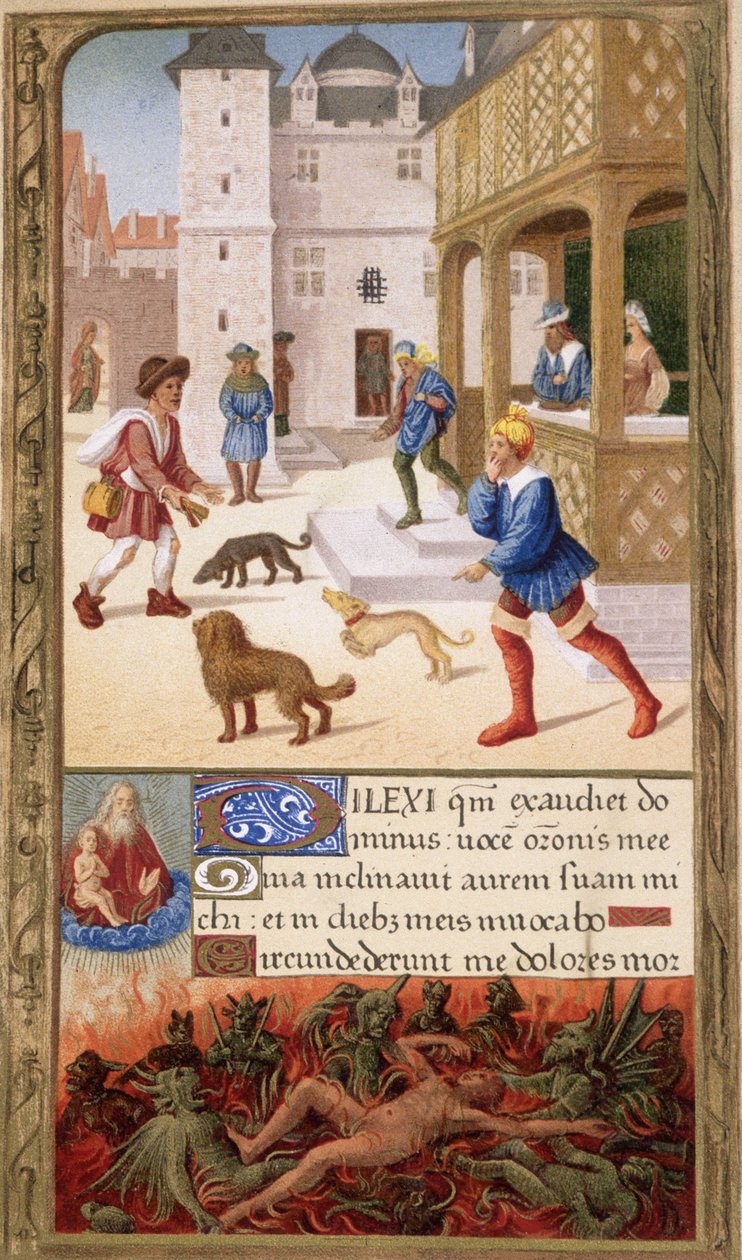 DILEXI qm̄ exaudiet do
minus : uocē or̄onis mee
Quia inclinauit aurem ſuam mi
chi : et in diebꝫ meis inuocabo
Circundederunt me dolores mor